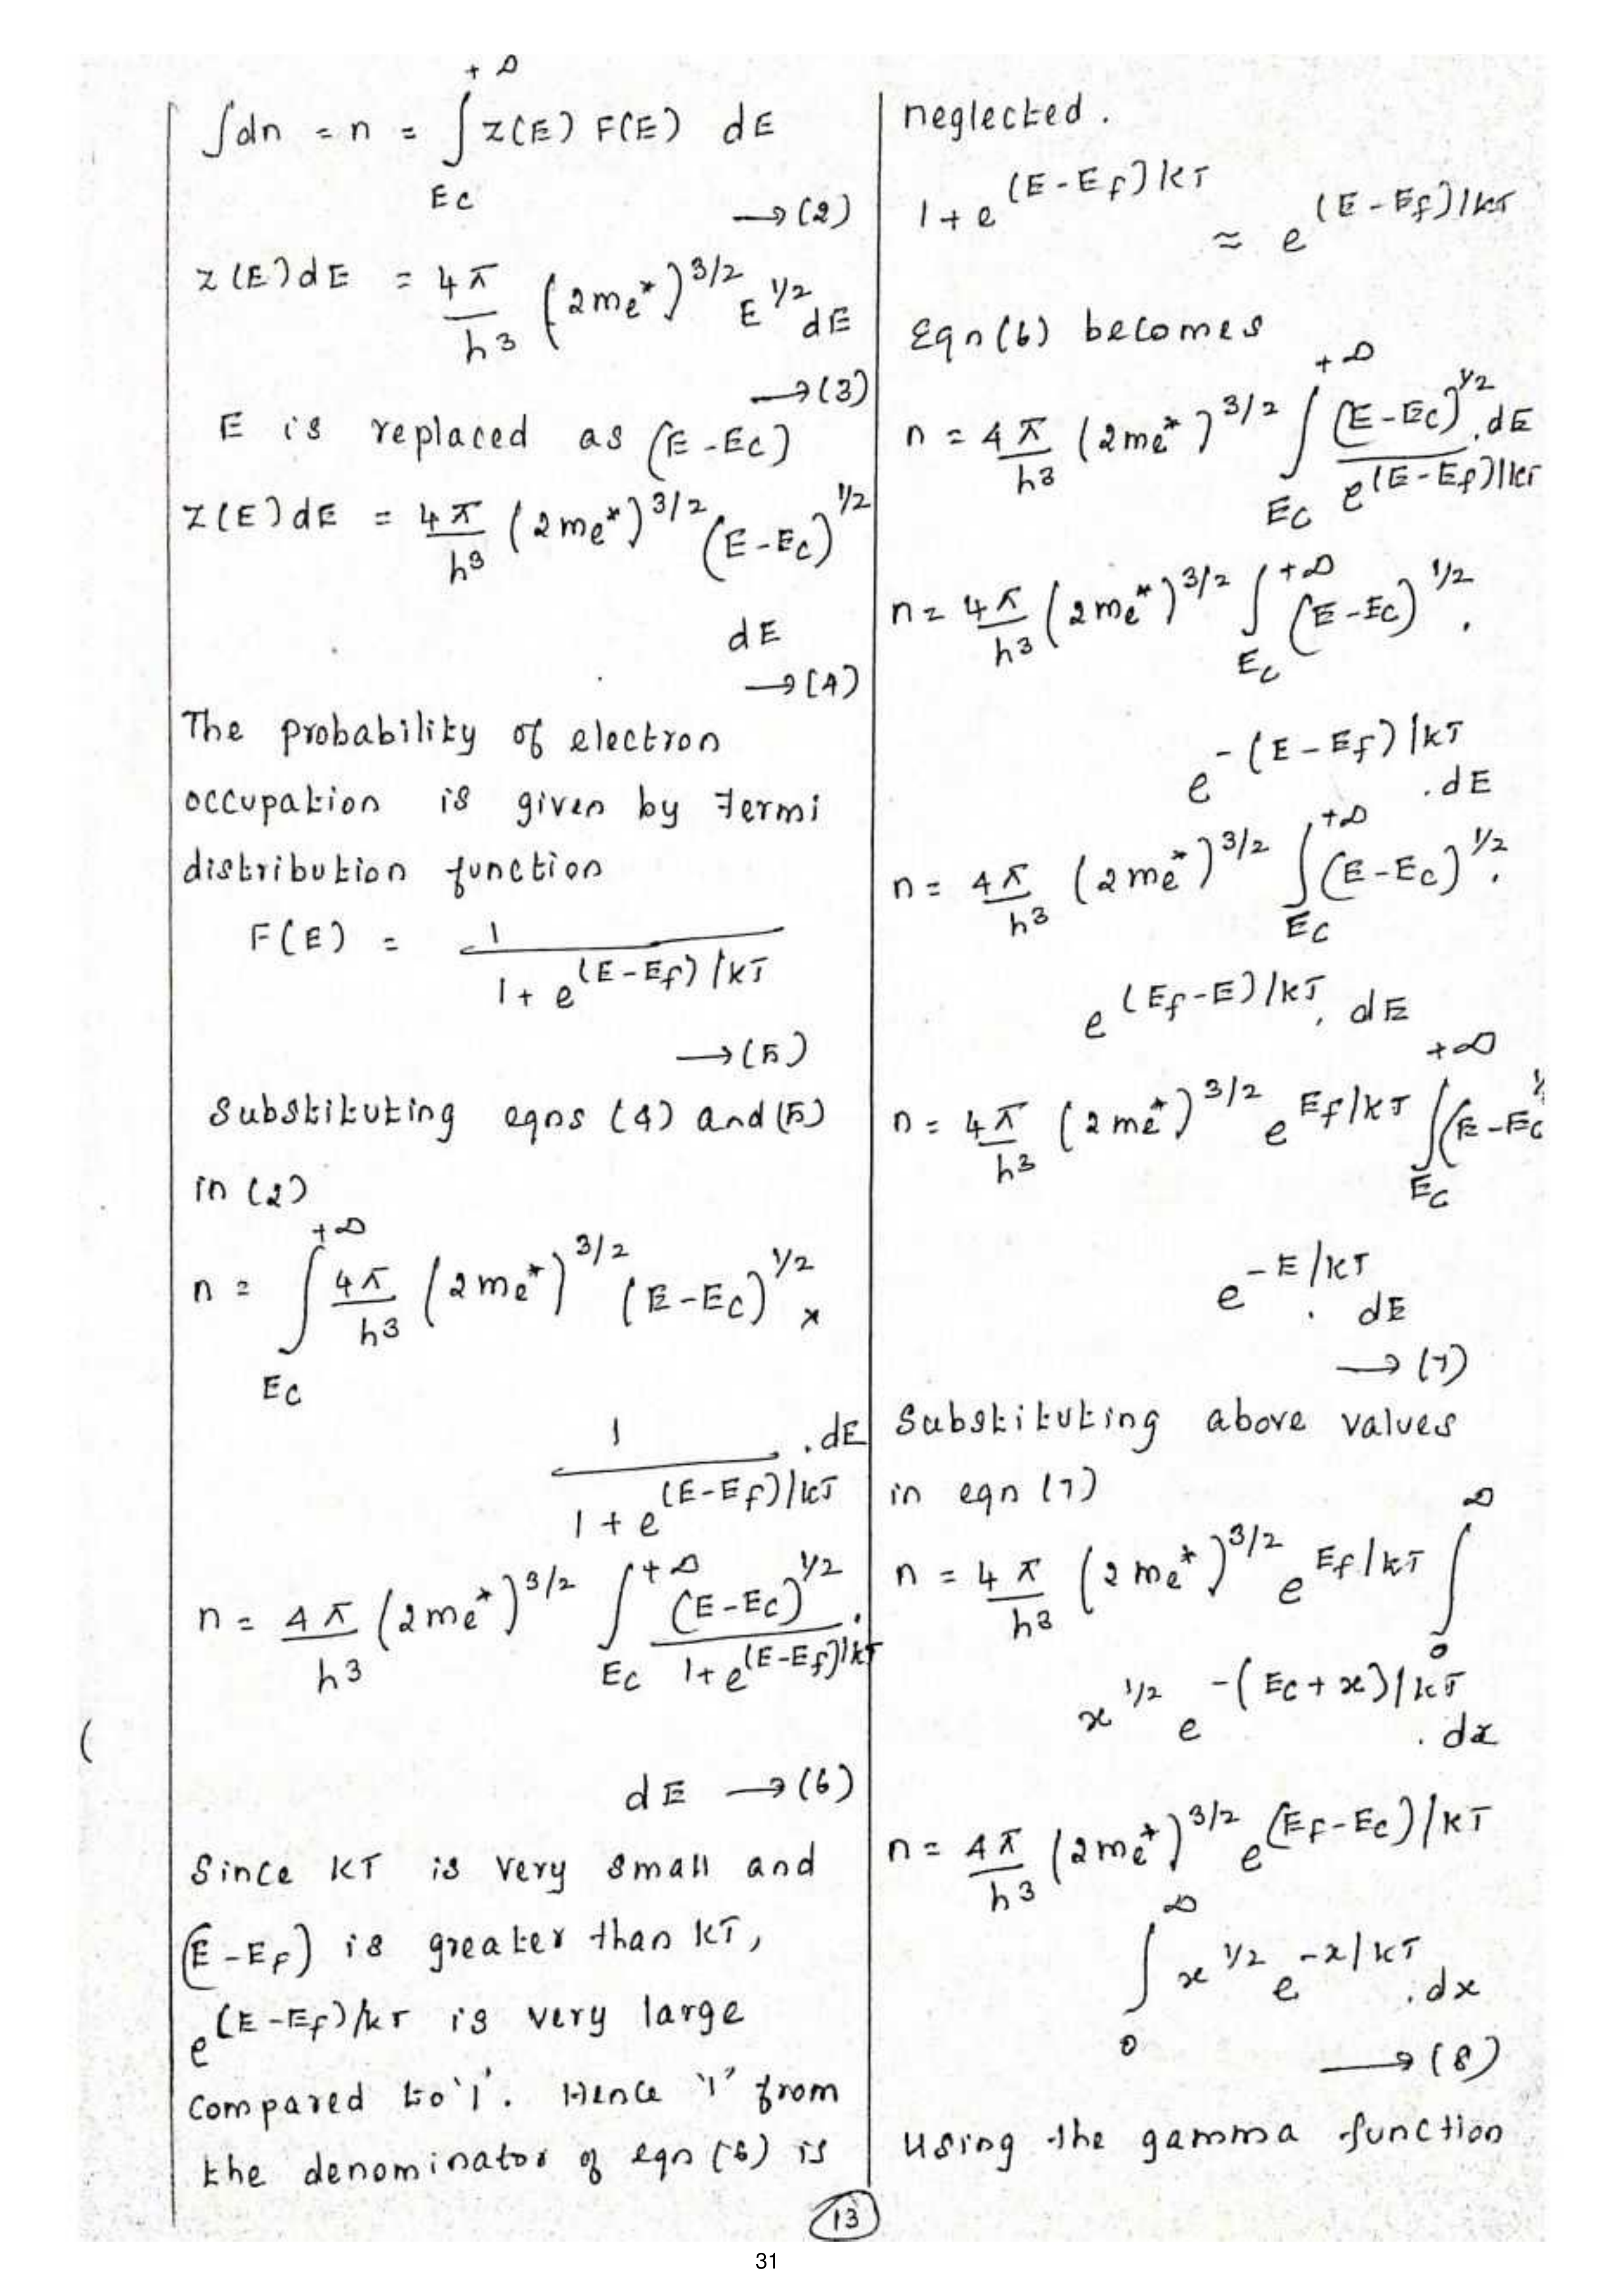 ∫dn = n = ∫_{Ec}^{+∞} Z(E) F(E) dE
→(2)
Z(E)dE = 4π/h³ (2me*)^{3/2} E^{1/2} dE
→(3)
E is replaced as (E-Ec)
Z(E)dE = 4π/h³ (2me*)^{3/2} (E-Ec)^{1/2}
dE
→(4)
The probability of electron
occupation is given by Fermi
distribution function
F(E) = 1/(1+e^{(E-Ef)/kT})
→(5)
Substituting eqns (4) and (5)
in (2)
n = ∫_{Ec}^{+∞} 4π/h³ (2me*)^{3/2} (E-Ec)^{1/2} ×
1/(1+e^{(E-Ef)/kT}) .dE
n = 4π/h³ (2me*)^{3/2} ∫_{Ec}^{+∞} (E-Ec)^{1/2}/(1+e^{(E-Ef)/kT}) .
dE →(6)
Since KT is very small and
(E-EF) is greater than KT,
e^{(E-EF)/kT} is very large
compared to '1'. Hence '1' from
the denominator of eqn (6) is
neglected.
1+e^{(E-Ef)/kT} ≈ e^{(E-Ef)/kT}
Eqn(6) becomes
n = 4π/h³ (2me*)^{3/2} ∫_{Ec}^{+∞} (E-Ec)^{1/2}/e^{(E-Ef)/kT} .dE
n = 4π/h³ (2me*)^{3/2} ∫_{Ec}^{+∞} (E-Ec)^{1/2} .
e^{-(E-Ef)/kT} .dE
n = 4π/h³ (2me*)^{3/2} ∫_{Ec}^{+∞} (E-Ec)^{1/2} .
e^{(Ef-E)/kT} . dE
n = 4π/h³ (2me*)^{3/2} e^{Ef/kT} ∫_{Ec}^{+∞} (E-Ec
e^{-E/kT} . dE
→(7)
Substituting above values
in eqn (7)
n = 4π/h³ (2me*)^{3/2} e^{Ef/kT} ∫_{0}^{∞}
x^{1/2} e^{-(Ec+x)/kT} .dx
n = 4π/h³ (2me*)^{3/2} e^{(EF-Ec)/kT}
∫_{0}^{∞} x^{1/2} e^{-x/kT} .dx
→(8)
Using the gamma function
13
31